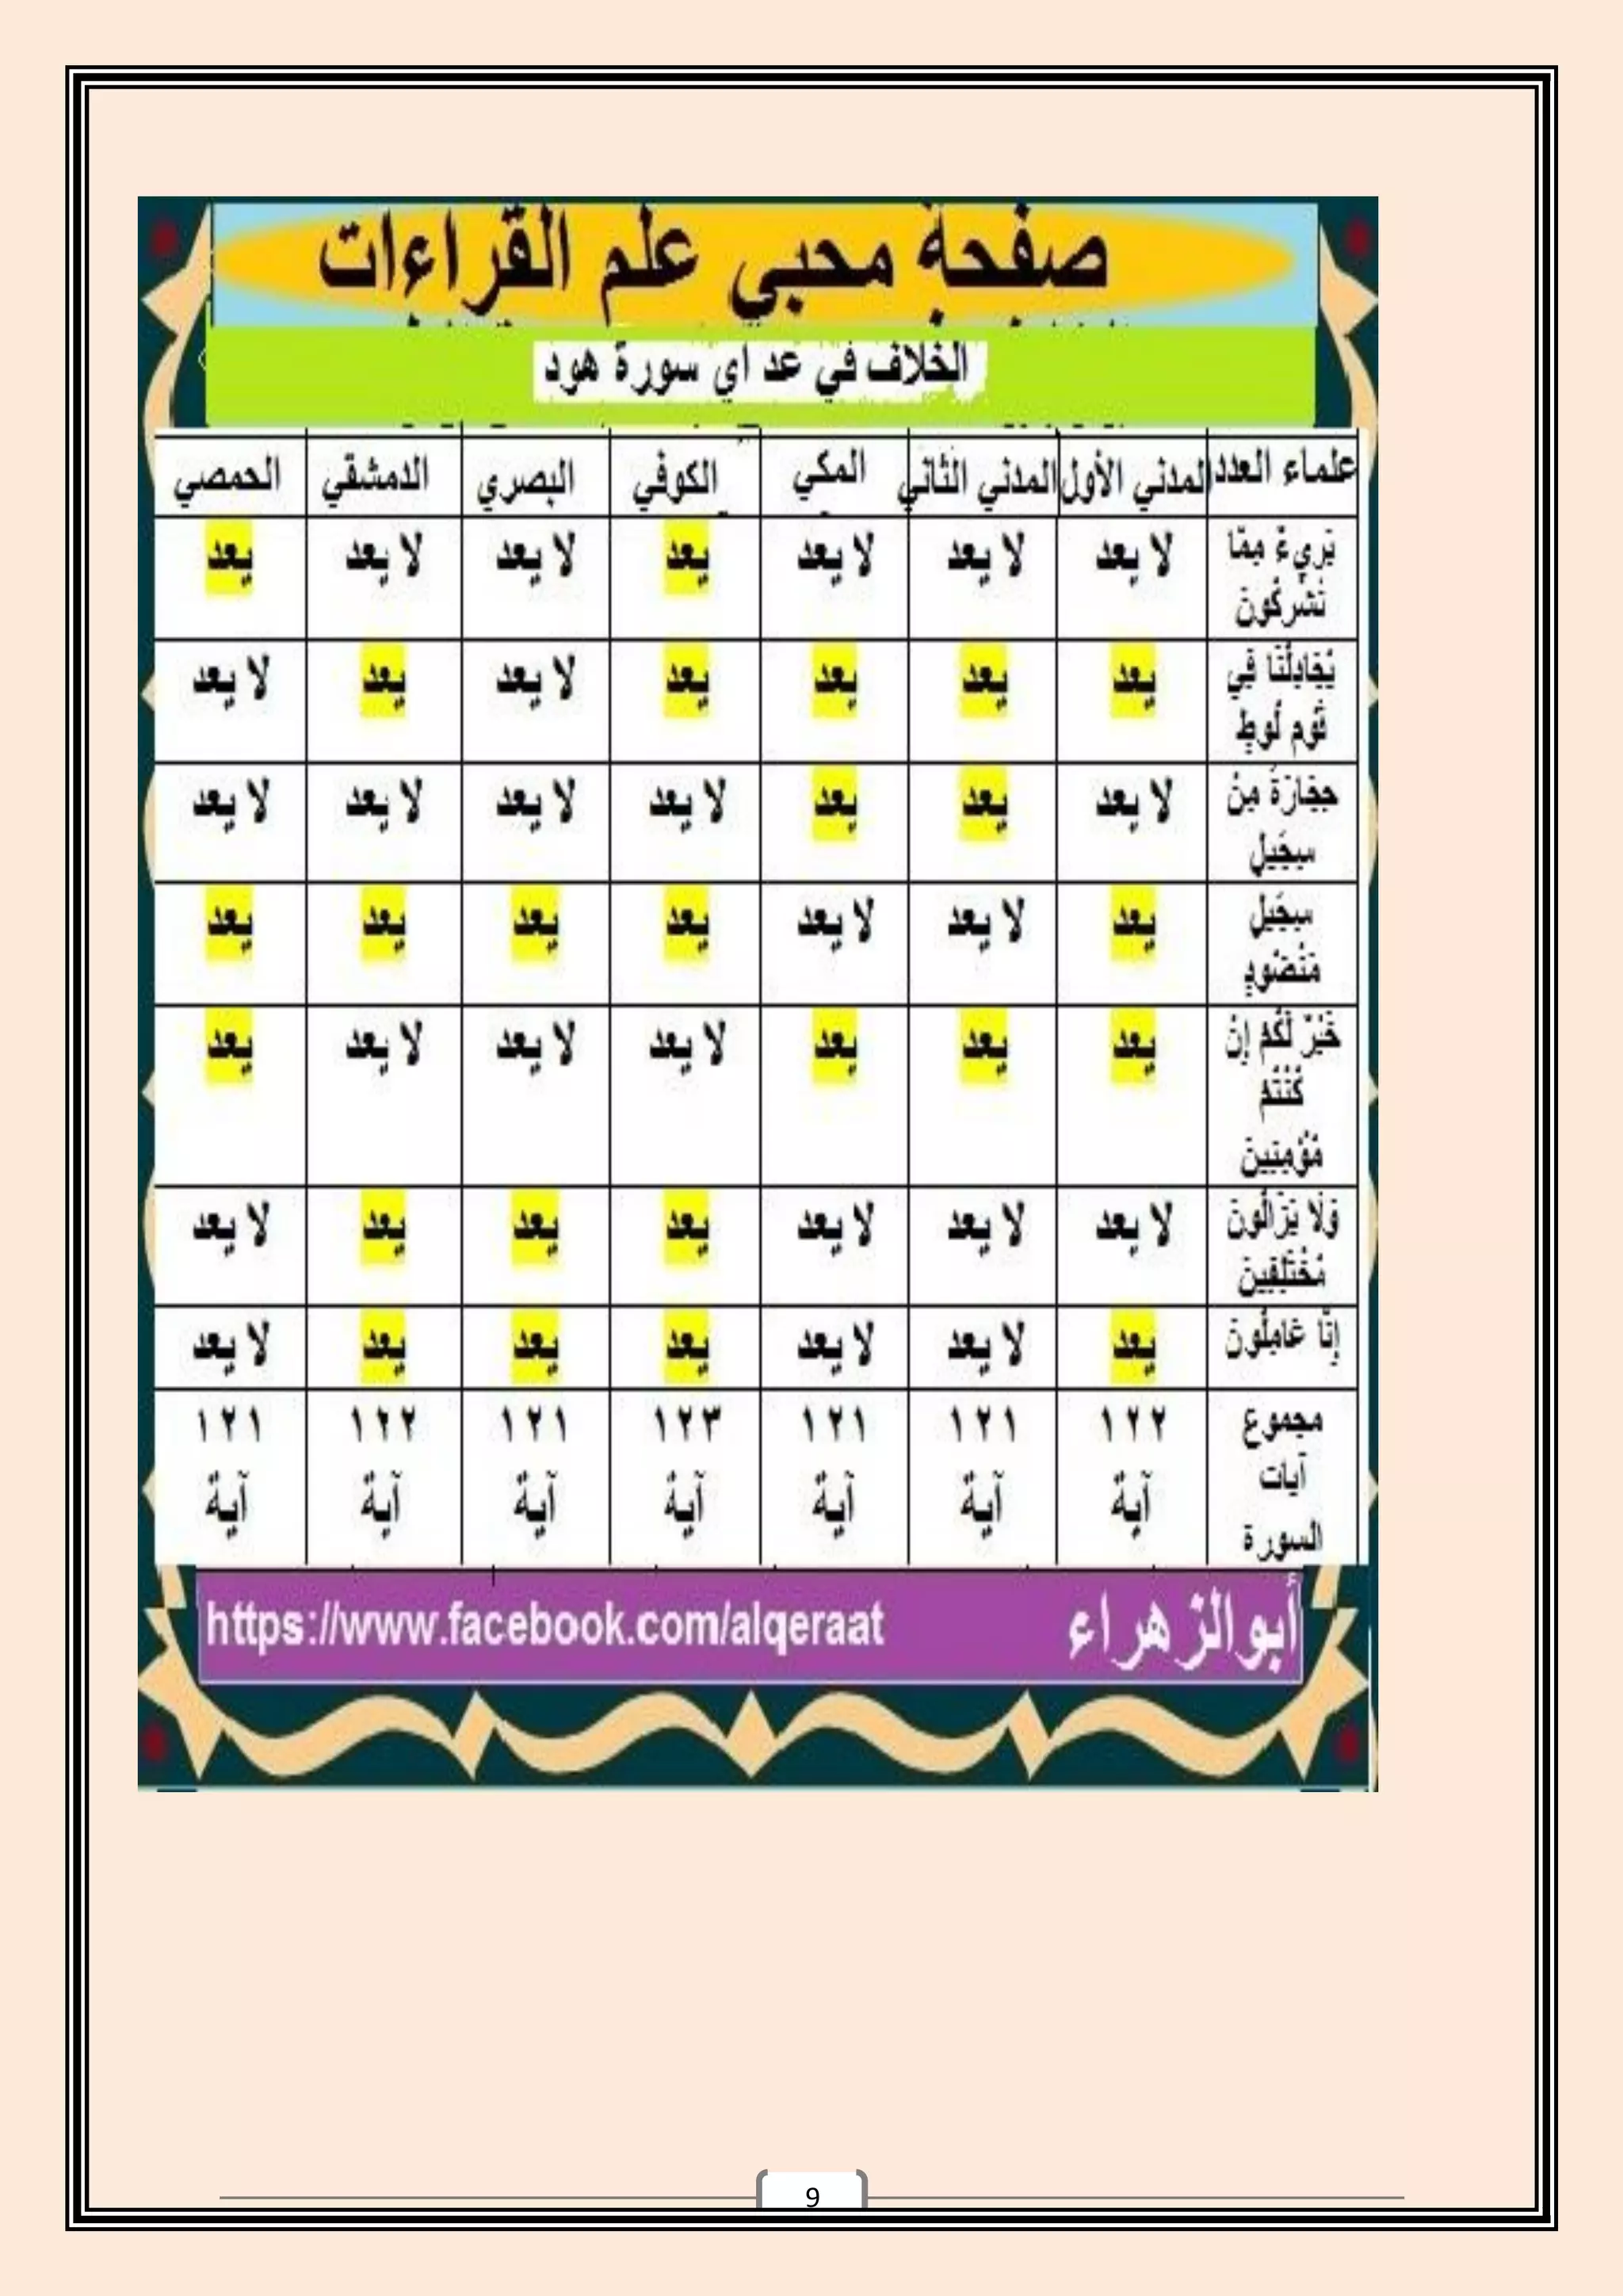 صفحة محبي علم القراءات
الخلاف في عد اي سورة هود
علماء العدد المدني الأول المدني الثاني المكي الكوفي البصري الدمشقي الحمصي
بَرِيءٌ مِمَّا تُشْرِكُونَ لا يعد لا يعد لا يعد يعد لا يعد لا يعد يعد
يُجَادِلُنَا فِي قَوْمِ لُوطٍ يعد يعد يعد يعد لا يعد يعد لا يعد
حِجَارَةً مِنْ سِجِّيلٍ لا يعد يعد يعد لا يعد لا يعد لا يعد لا يعد
سِجِّيلٍ مَنْضُودٍ يعد لا يعد لا يعد يعد يعد يعد يعد
خَيْرٌ لَكُمْ إِنْ كُنْتُمْ مُؤْمِنِينَ يعد يعد يعد لا يعد لا يعد لا يعد يعد
وَلَا يَزَالُونَ مُخْتَلِفِينَ لا يعد لا يعد لا يعد يعد يعد يعد لا يعد
إِنَّا عَامِلُونَ يعد لا يعد لا يعد يعد يعد يعد لا يعد
مجموع آيات السورة ١٢٢ آية ١٢١ آية ١٢١ آية ١٢٣ آية ١٢١ آية ١٢٢ آية ١٢١ آية
أبوالزهراء https://www.facebook.com/alqeraat
9